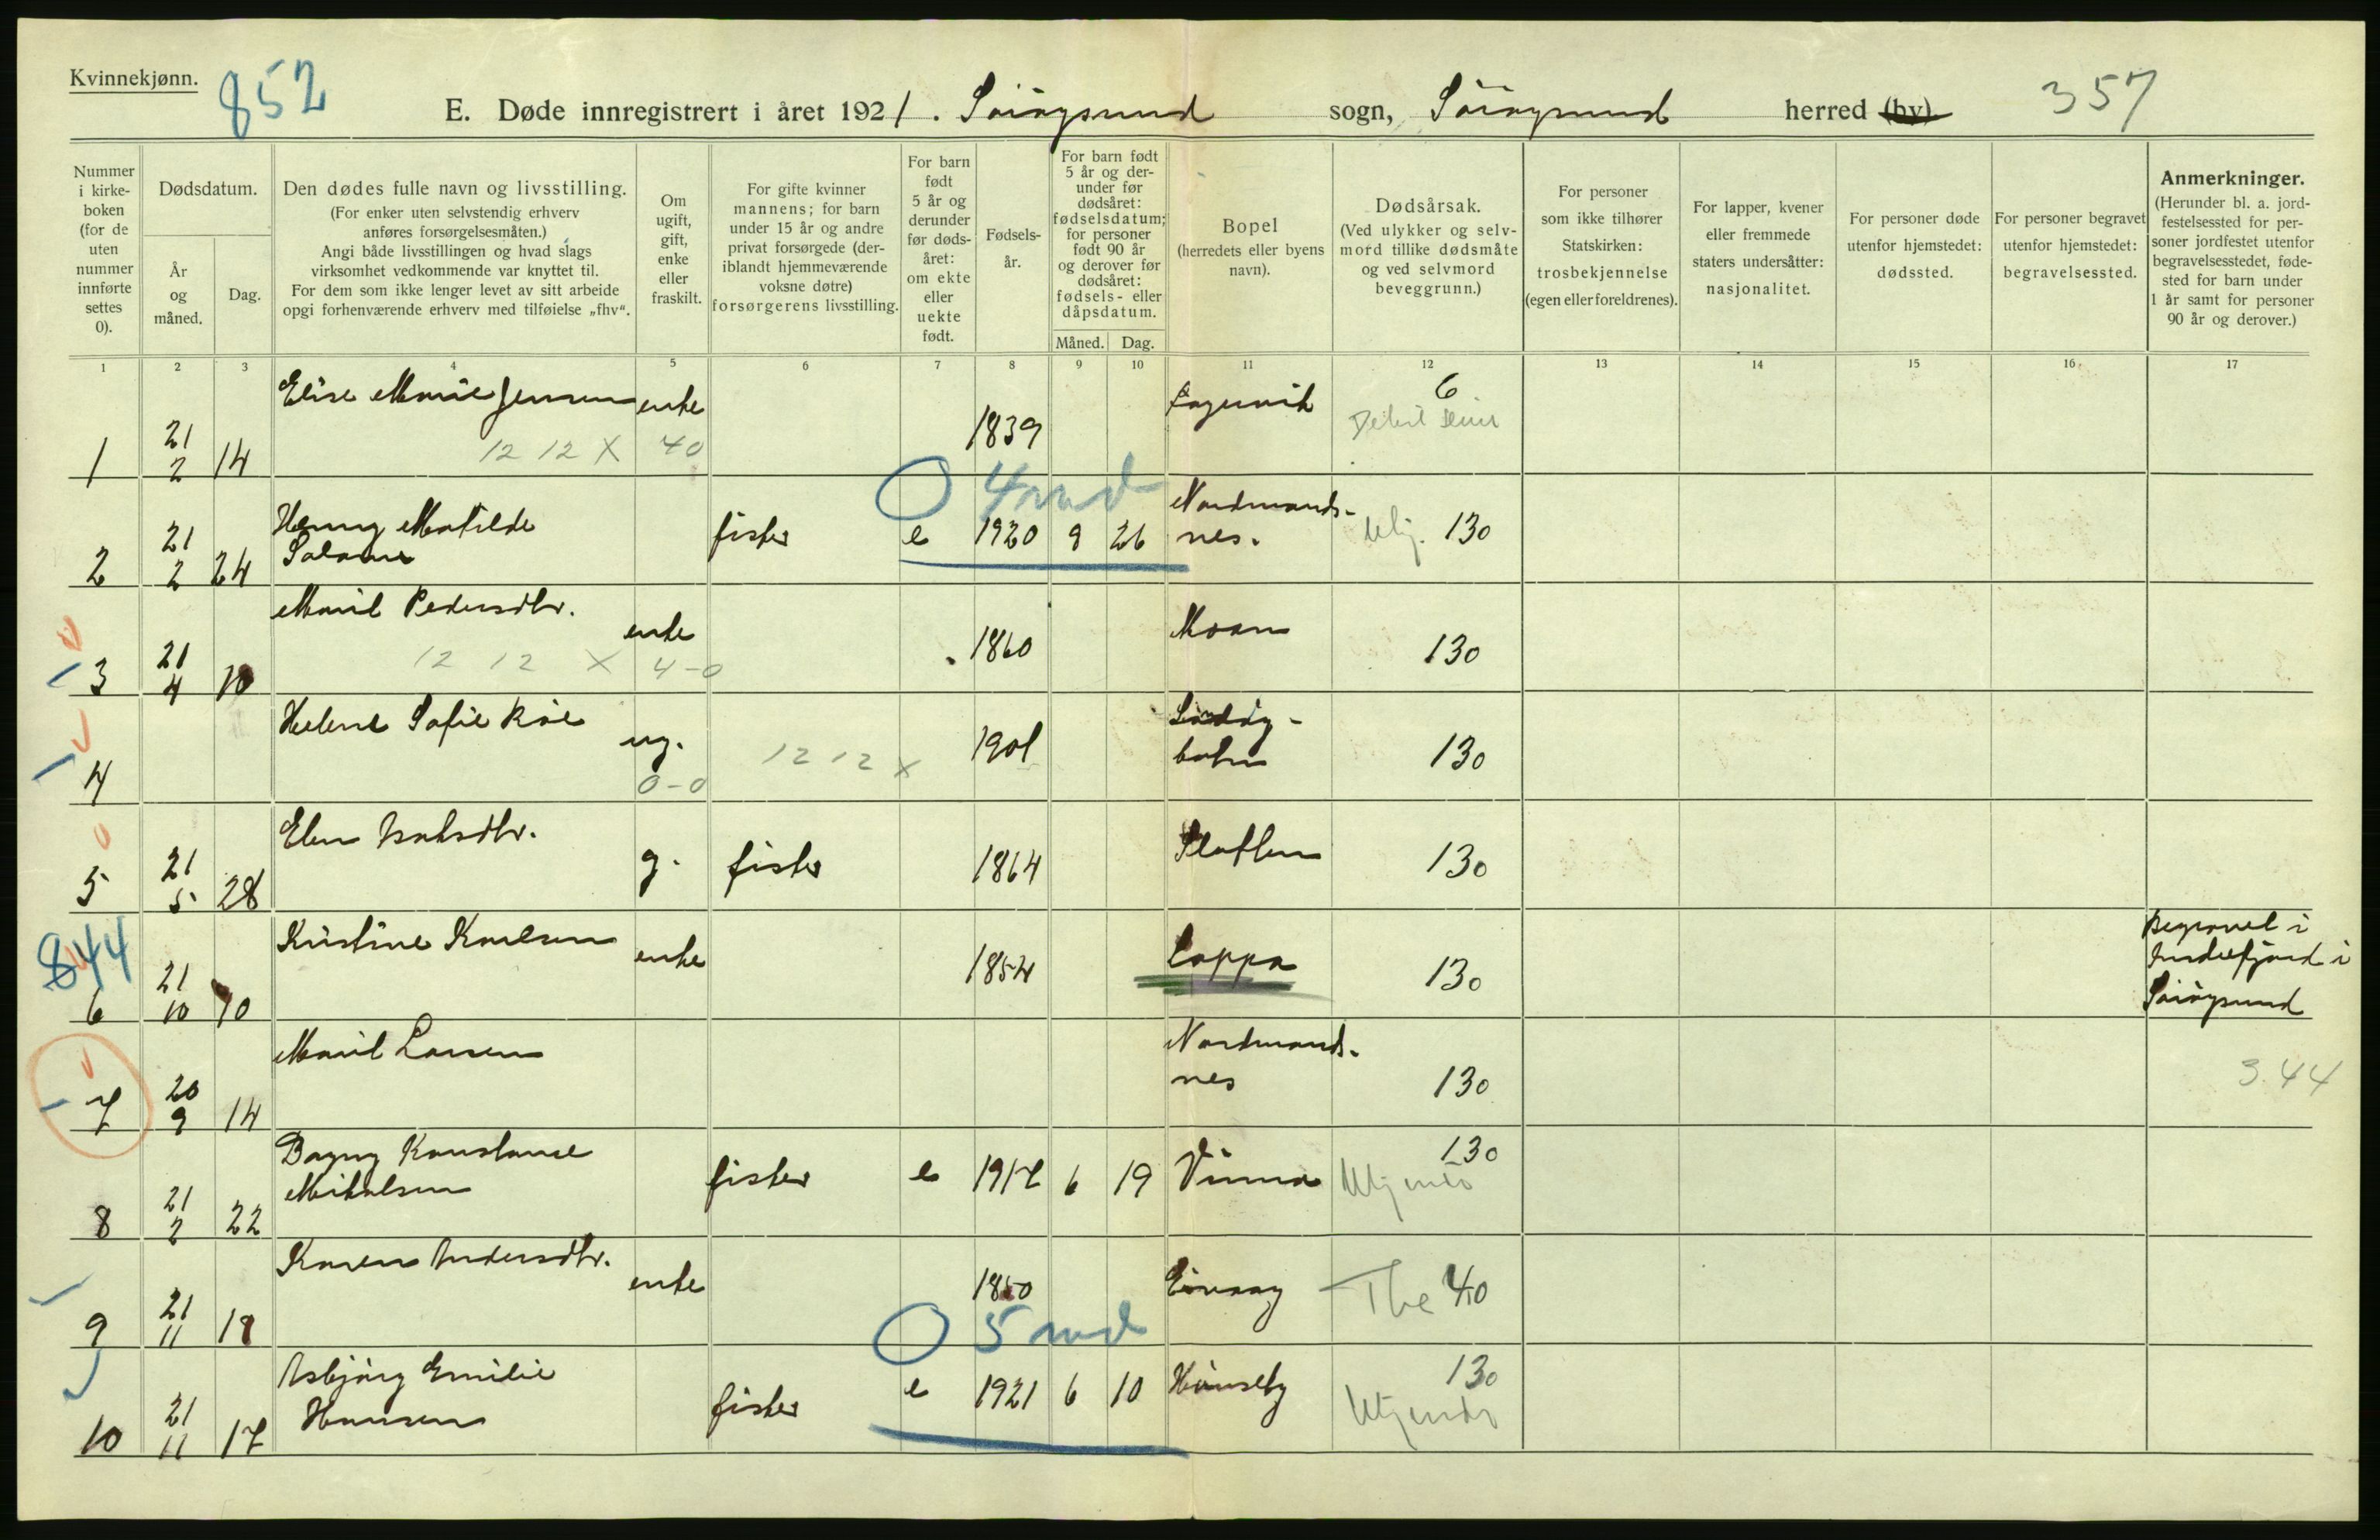 Kvinnekjønn.
852
E. Døde innregistrert i året 1921. Söröysund sogn, Söröysund herred (by) 357
Nummer i kirkeboken (for de uten nummer innførte settes 0).
Dødsdatum.
År og måned.
Dag.
Den dødes fulle navn og livsstilling.
(For enker uten selvstendig erhverv
anføres forsørgelsesmåten.)
Angi både livsstillingen og hvad slags
virksomhet vedkommende var knyttet til.
For dem som ikke lenger levet av sitt arbeide
opgi forhenværende erhverv med tilføielse „fhv“.
Om
ugift,
gift,
enke
eller
fraskilt.
For gifte kvinner
mannens; for barn
under 15 år og andre
privat forsørgede (der-
iblandt hjemmeværende
voksne døtre)
forsørgerens livsstilling.
For barn
født
5 år og
derunder
før døds-
året:
om ekte
eller
uekte
født.
Fødsels-
år.
For barn født
5 år og der-
under før
dødsåret:
fødselsdatum;
for personer
født 90 år
og derover før
dødsåret:
fødsels- eller
dåpsdatum.
Måned. Dag.
Bopel
(herredets eller byens
navn).
Dødsårsak.
(Ved ulykker og selv-
mord tillike dødsmåte
og ved selvmord
beveggrunn.)
For personer
som ikke tilhører
Statskirken:
trosbekjennelse
(egen eller foreldrenes).
For lapper, kvener
eller fremmede
staters undersåtter:
nasjonalitet.
For personer døde
utenfor hjemstedet:
dødssted.
For personer begravet
utenfor hjemstedet:
begravelsessted.
Anmerkninger.
(Herunder bl. a. jord-
festelsessted for per-
soner jordfestet utenfor
begravelsesstedet, føde-
sted for barn under
1 år samt for personer
90 år og derover.)
1 2 3 4 5 6 7 8 9 10 11 12 13 14 15 16 17
1 21 2 14 Elise Marie Jensen enke 1839 6
12 12 X 40
0 4 md
2 21 2 24 Henny Matilde fisker e 1920 9 26 Nordmands-nes. 130
3 21 4 10 Marit Pedersdtr. enke 1860 130
12 12 X 4-0
4 Helene Sofie ug. 1901 130
0-0 12 12 X
5 21 5 28 Elen Isaksdtr. g. fisker 1864 130
844
6 21 10 10 Kristine Karlsen enke 1854 Loppa 130 Begravet i
i
Söröysund
7 20 9 14 Marit Larsen Nordmands-nes 130 344
8 21 2 22 Dagny Konstanse
Mikalsen fisker e 1917 6 19 130
9 21 11 Karen Andersdtr. enke The 40
0 5 md
10 21 11 17 Asbjörg Emilie
Hansen fisker e 1921 6 10 Hönseby 130